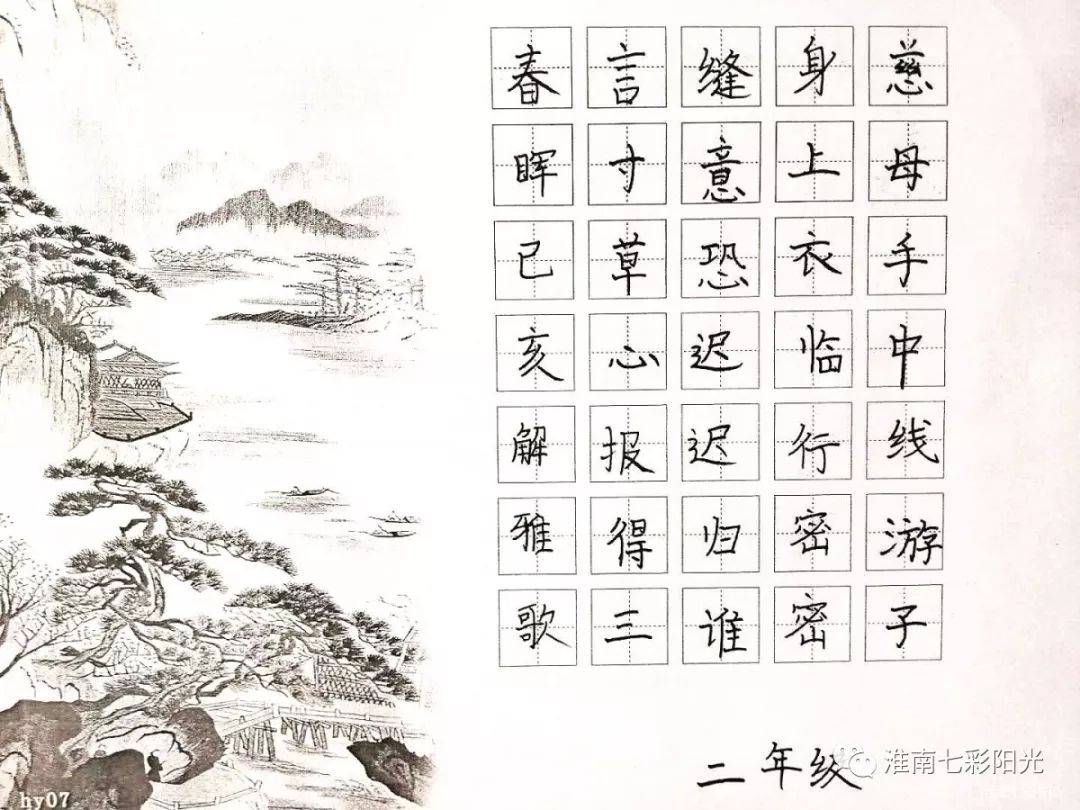 慈母手中线游子
身上衣临行密密
缝意恐迟迟归谁
言寸草心报得三
春晖已亥解雅歌
二年级
淮南七彩阳光
hy07